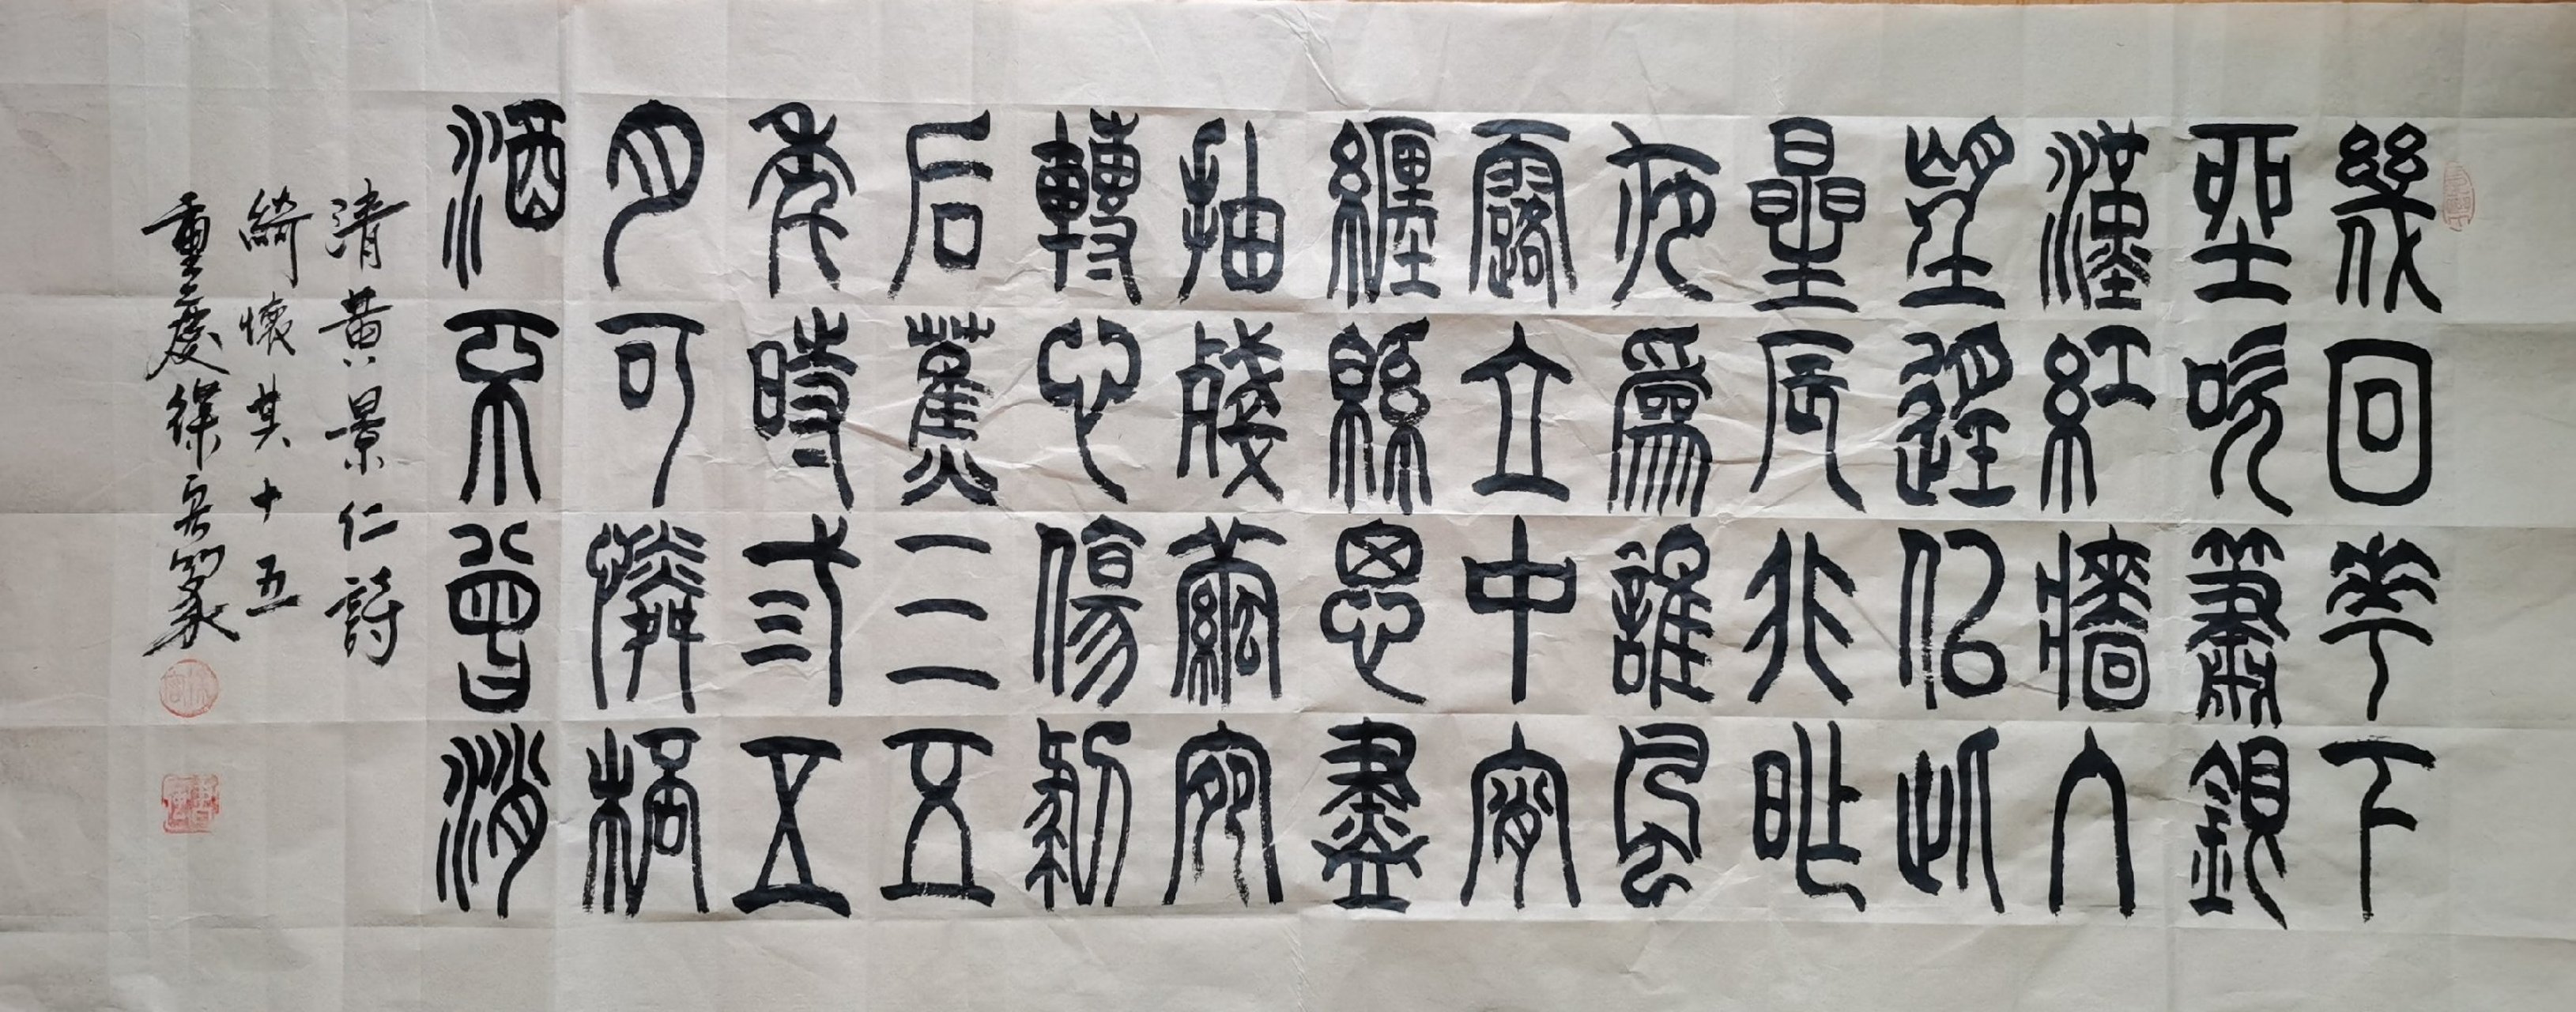 幾回華下
坐吹簫銀
漢紅牆入
望遙佀此
星辰非昨
夜爲誰風
露立中宵
纏緜思盡
抽殘繭宛
轉心傷剝
后蕉三五
年時弎五
月可憐桮
酒不曾消
清黃景仁詩
綺懷其十五
重慶徐篆